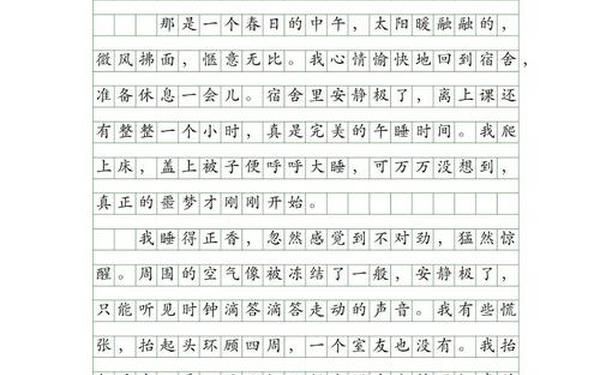 那是一个春日的中午，太阳暖融融的，
微风拂面，惬意无比。我心情愉快地回到宿舍，
准备休息一会儿。宿舍里安静极了，离上课还
有整整一个小时，真是完美的午睡时间。我爬
上床，盖上被子便呼呼大睡，可万万没想到，
真正的噩梦才刚刚开始。
我睡得正香，忽然感觉到不对劲，猛然惊
醒。周围的空气像被冻结了一般，安静极了，
只能听见时钟滴答滴答走动的声音。我有些慌
张，抬起头环顾四周，一个室友也没有。我抬